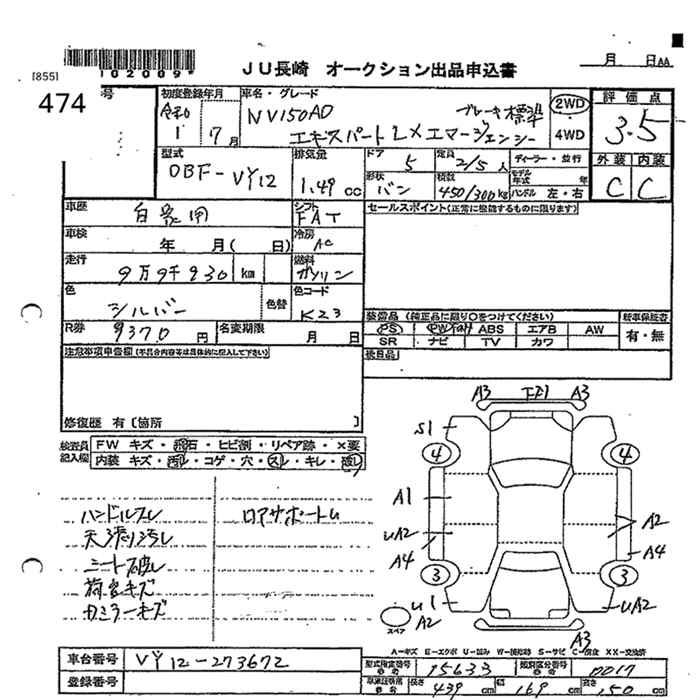 [855]
02009*
JU長崎 オークション出品申込書
月 日AA
474
号
初度登録年月
令和
1 7月
車名・グレード
NV150AD ブレーキ標準
エキスパートLXエマージェンシー
2WD
4WD
評価点
3.5
外装 内装
C C
型式
DBF-VY12
排気量
1.49 cc
ドア 5
定員 2/5 人
形状 バン
積載 450/300 kg
ディーラー・並行
モデル年式 年
ハンドル 左・右
車歴 自家用
シフト FAT
セールスポイント(正常に機能するものに限ります)
車検 年 月( 日)
冷房 AC
走行 9万9千930 km
燃料 ガソリン
色 シルバー
色替
色コード K23
装備品(純正品に限り○をつけてください)
新車保証書
PS PW ABS エアB AW
SR ナビ TV カワ
有・無
R券 9370 円
名変期限 月 日
後日品
注意事項申告欄(不具合内容等は具体的に記入して下さい)
修復歴 有〔箇所 〕
検査員記入欄
FW キズ・飛石・ヒビ割・リペア跡・×要
内装 キズ・汚レ・コゲ・穴・スレ・キレ・破レ
ハンドルスレ
天張り汚レ
シート破レ
荷室キズ
Rミラーキズ
ロアサポートU
A3 A3
S1
4 4
A1
UA2 A2
A4 A4
3 3
U1 UA2
A2
スペア
A3
A-キズ E-エクボ U-凹み W-補修跡 S-サビ C-腐食 XX-交換済
車台番号 VY12-273672
型式指定番号 15633
類別区分番号 0017
登録番号
長さ 439 cm 幅 169 cm 高さ 150 cm